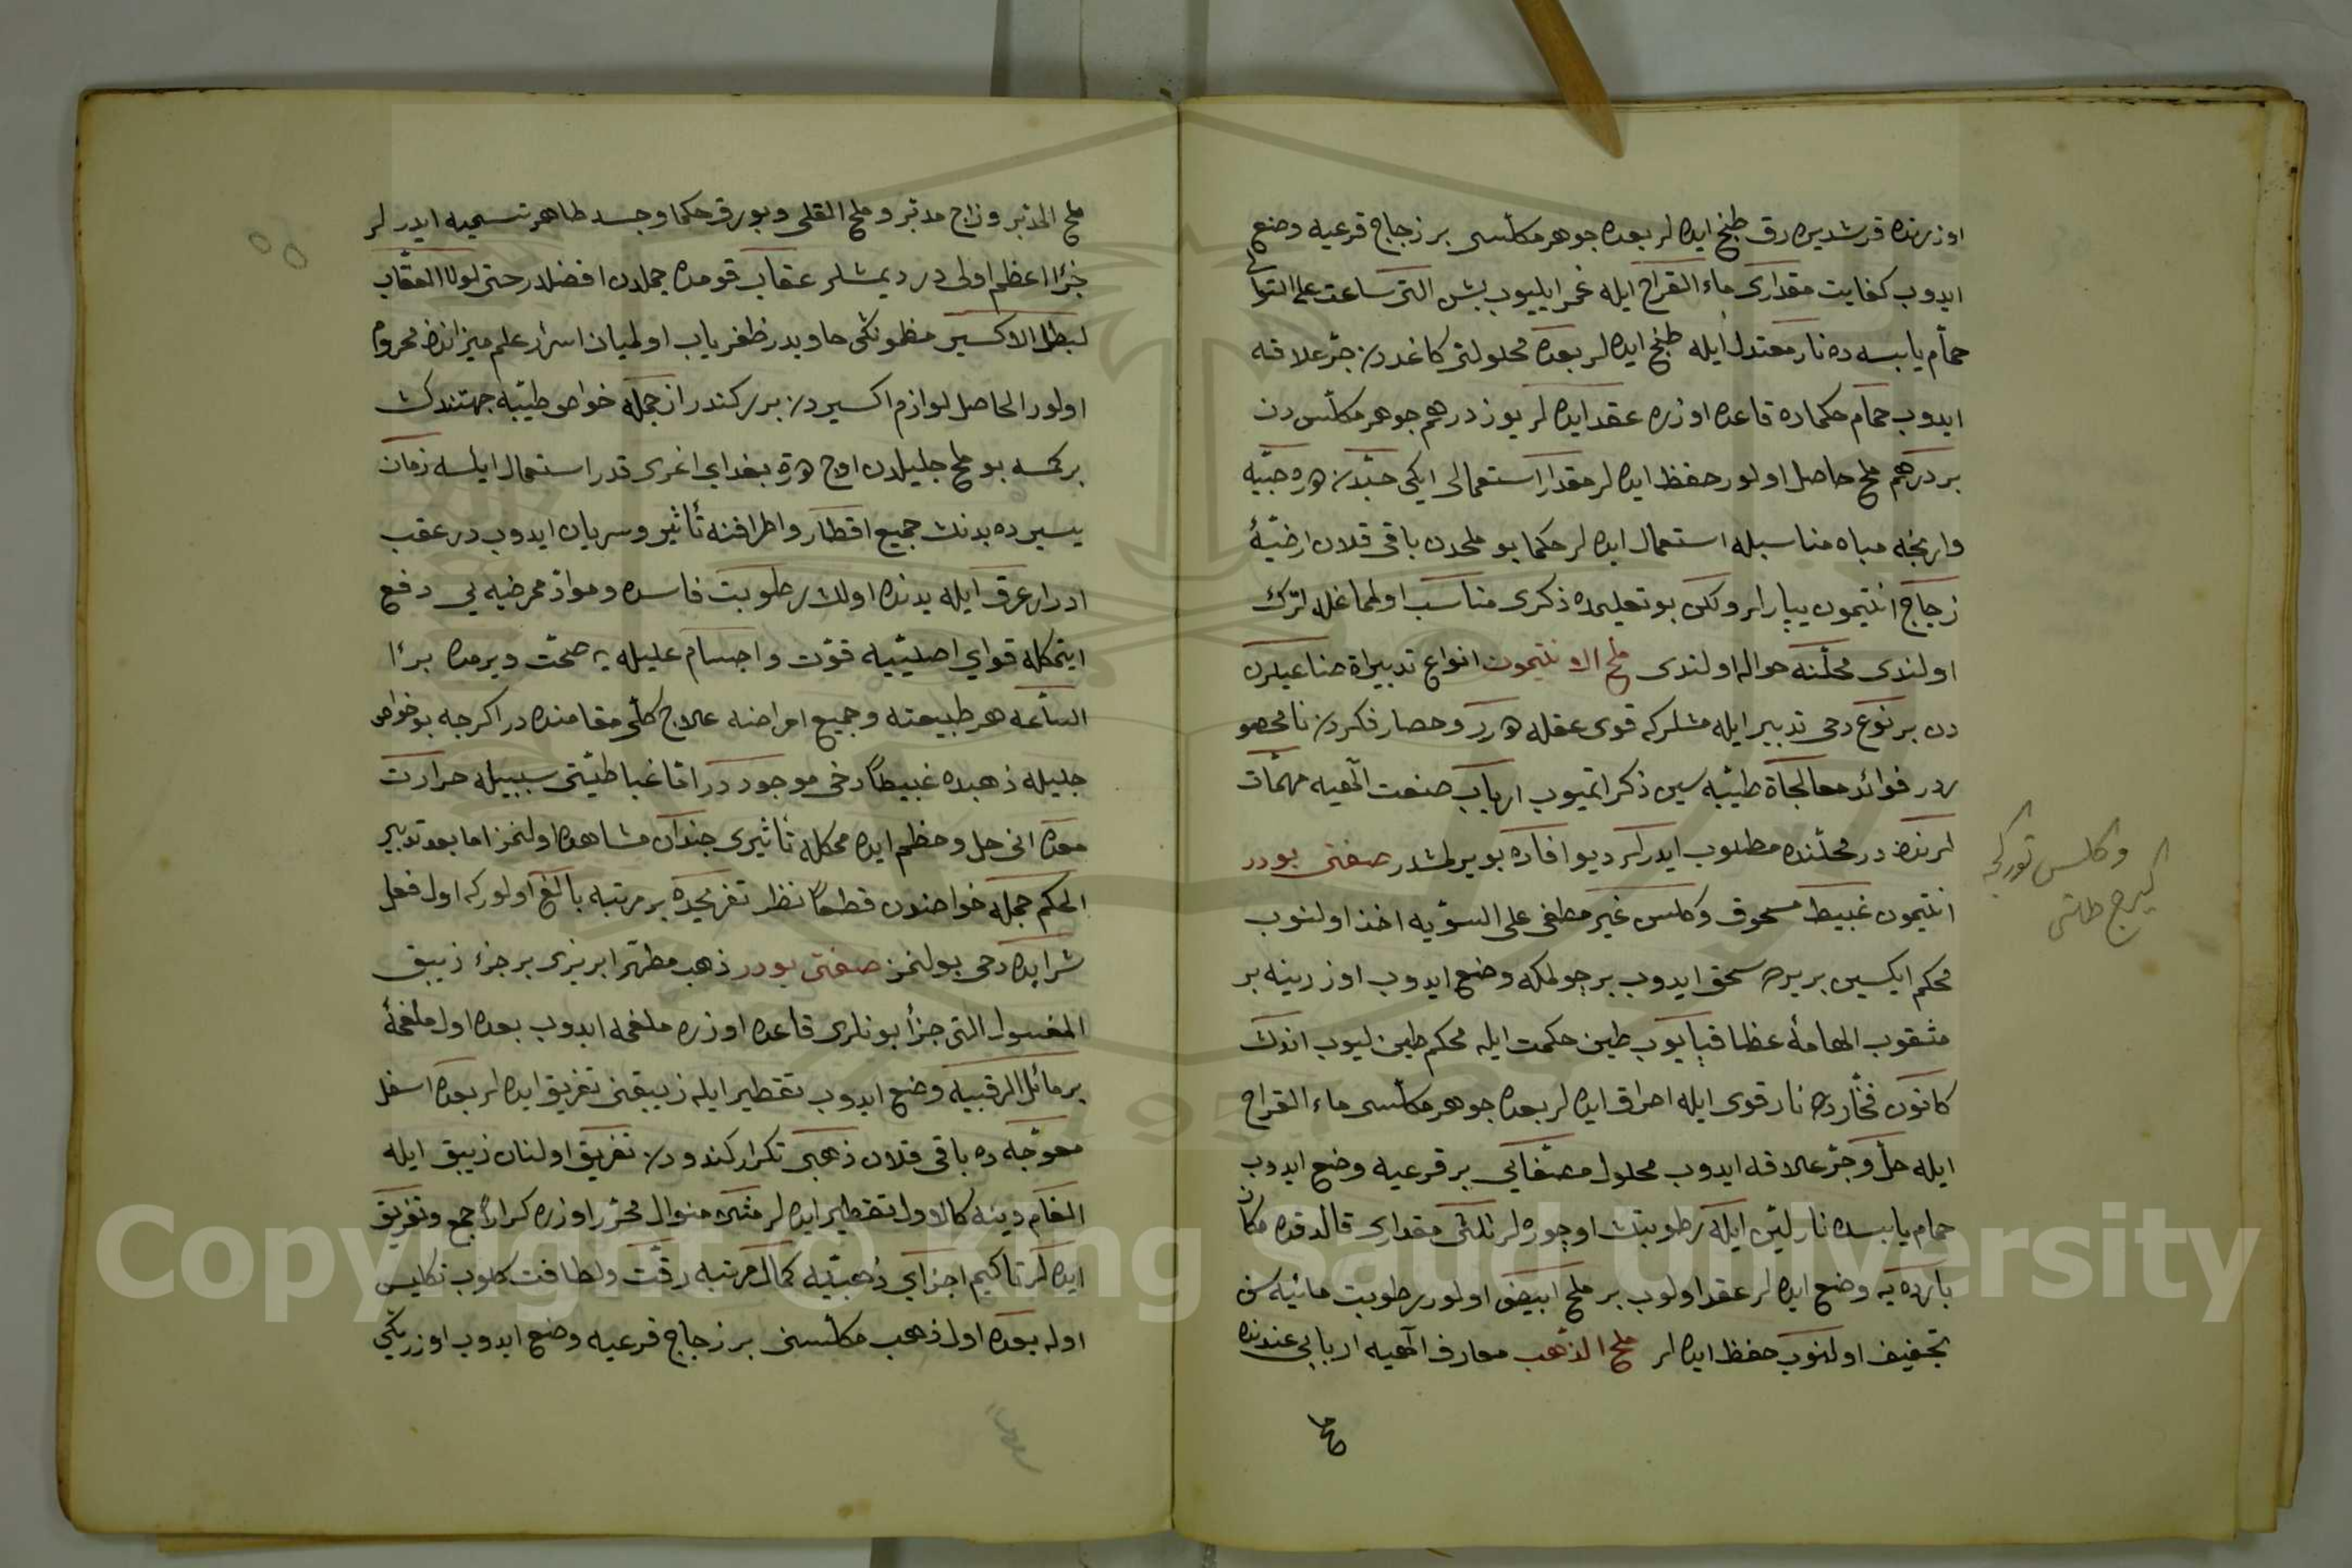 اوزرنده قرشدیره رق طبخ ایده لر بعده جوهر مكلّسى بر زجاج قرعيه وضع
ايدوب كفايت مقدارى ماء القراح ايله غمر ايليوب بش التى ساعت على التوالى
حمّام يابسه ده نار معتدل ايله طبخ ايده لر بعده محلولنى كاغددن جرّ علاقه
ايدوب حمام حكماده قاعده اوزره عقد ايده لر يوز درهم جوهر مكلّس دن
بر درهم ملح حاصل اولور حفظ ايده لر مقدار استعمالى ايكى حبّه دن اون حبّيه
وارنجه مياه مناسبله استعمال ايده لر حكما بو ملحدن باقى قلان ارضيّۀ
زجاج انتيمون يپارلر ولكن بو تعليمده ذكرى مناسب اولمامغله ترك
اولندى محلّنه حواله اولندى ملح الانتيمون انواع تدبيراة صناعيه لرن
دن بر نوع دخى تدبير ايله مشلركه قوى عقله در و حصار فكردن نا محصو
ردر فوائد معالجاة طبّيه سين ذكر اتميوب ارباب صنعت الٓهيه مهمّات
لرنده در محلّنده مطلوب ايدرلر ديو افاده بويرلمشدر صفتى بودر
انتيمون غبيط مسحوق و كلس غير مطفى على السوّيه اخذ اولنوب
محكم ايكسين بر يره سحق ايدوب بر چولمكه وضع ايدوب اوزرينه بر
مثقوب الهامۀ غطا قپايوب طين حكمت ايله محكم طينليوب اندك
كانون فخّارده نار قوى ايله احراق ايده لر بعده جوهر مكلّسى ماء القراح
ايله حلّ و جرّ علاقه ايدوب محلول مصفّايى بر قرعيه وضع ايدوب
حمام يابسده نار ليّن ايله رطوبتك اوچوره لر ثلثى مقدارى قالدقده مكان
بارده يه وضع ايده لر عقد اولوب بر ملح ابيض اولور رطوبت مائيه سن
تجفيف اولنوب حفظ ايده لر ملح الذهب معارف الٓهيه اربابى عندنده
ملح
وكلس توركجه
كيرج طاشى
ملح المدبّر و زاج مدبّر و ملح القلى و بورق حكما و جسد طاهر تسميه ايدرلر
جزٔ اعظم اولى در ديمشلر عقاب قومده جمله دن افضلدر حتى لولا العقاب
لبطل الاكسير مظمونكى حاويدر ظفرياب اولميان اسرار علم ميزانده محروم
اولور الحاصل لوازم اكسيردن بر ركندر از جمله خواص طبّيه جهتندك
بر كمسه بو ملح جليلدن اوچ هره بغداى اغرى قدر استعمال ايلسه زمان
يسيرده بدنك جميع اقطار و اطرافنه تأثير و سريان ايدوب در عقب
ادرار عرق ايله بدنده اولان رطوبت فاسده و موادّ ممرضه يى دفع
ايتمكله قواى اصليّيه قوّت و اجسام عليله يه صحّت ويرمده برٔا
السّاعه هر طبيعته و جميع امراضه علاج كلّى مقامنده در اكرچه بو خواص
جليله ذهبده غبيطًا دخى موجود در امّا غباطيّتى سببيله حرارت
معده انى حل و هظم ايده ممكله تأثيرى چندان مشاهده اولنمز اما بعد تدبير
الحكم جمله خواصندن قطعًا نظر تفريجيده بر مرتبه بالغ اولوركه اول فعل
شرابده دخى بولنمز صفتى بودر ذهب مطهّر ابريزى بر جزء زيبق
المغسول التى جزٔ بونلرى قاعده اوزره ملغمه ايدوب بعده اول ملغمۀ
بر مائل الرقبيه وضع ايدوب تقطير ايله زيبقنى تفريق ايده لر بعده اسفل
معوّجه ده باقى قلان ذهبى تكرار كندودن تفريق اولنان زيبق ايله
الغام و ينه كالاول تقطير ايده لر مثلا منوال محرّر اوزره كرارًا جمع و تفريق
ايده لر تا كيم اجزاى ذهبيّه كمال مرتبه رقّت و لطافت كلوب تكليس
اوله بعده اول ذهب مكلّسنى بر زجاج قرعيه وضع ايدوب اوزرينكى
Copyright © King Saud University
1957